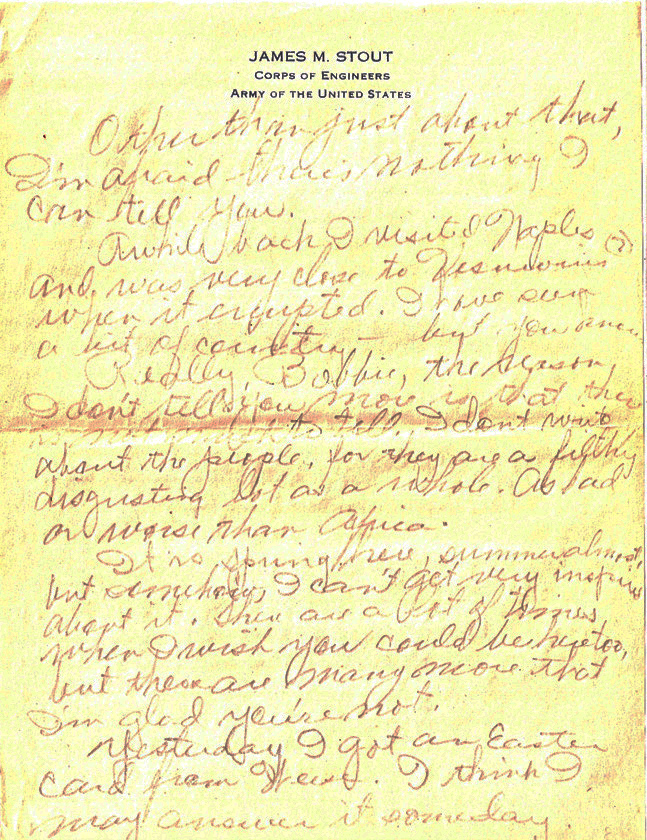 JAMES M. STOUT
CORPS OF ENGINEERS
ARMY OF THE UNITED STATES
Other than just about that,
I'm afraid there's nothing I
can tell you.
Awhile back I visited Naples
and was very close to Vesuvius (?)
when it erupted. I have seen
a lot of country — but you
Really, Bobbie, the reason
I don't tell you more is that there
is to tell. I don't write
about the people, for they are a filthy
disgusting lot as a whole. As bad
or worse than Africa.
It is spring here, summer almost,
but somehow, I can't get very inspired
about it. There are a lot of times,
when I wish you could be here too,
but there are many more that
I'm glad you're not.
Yesterday I got an Easter
card from. I think I
may answer it someday